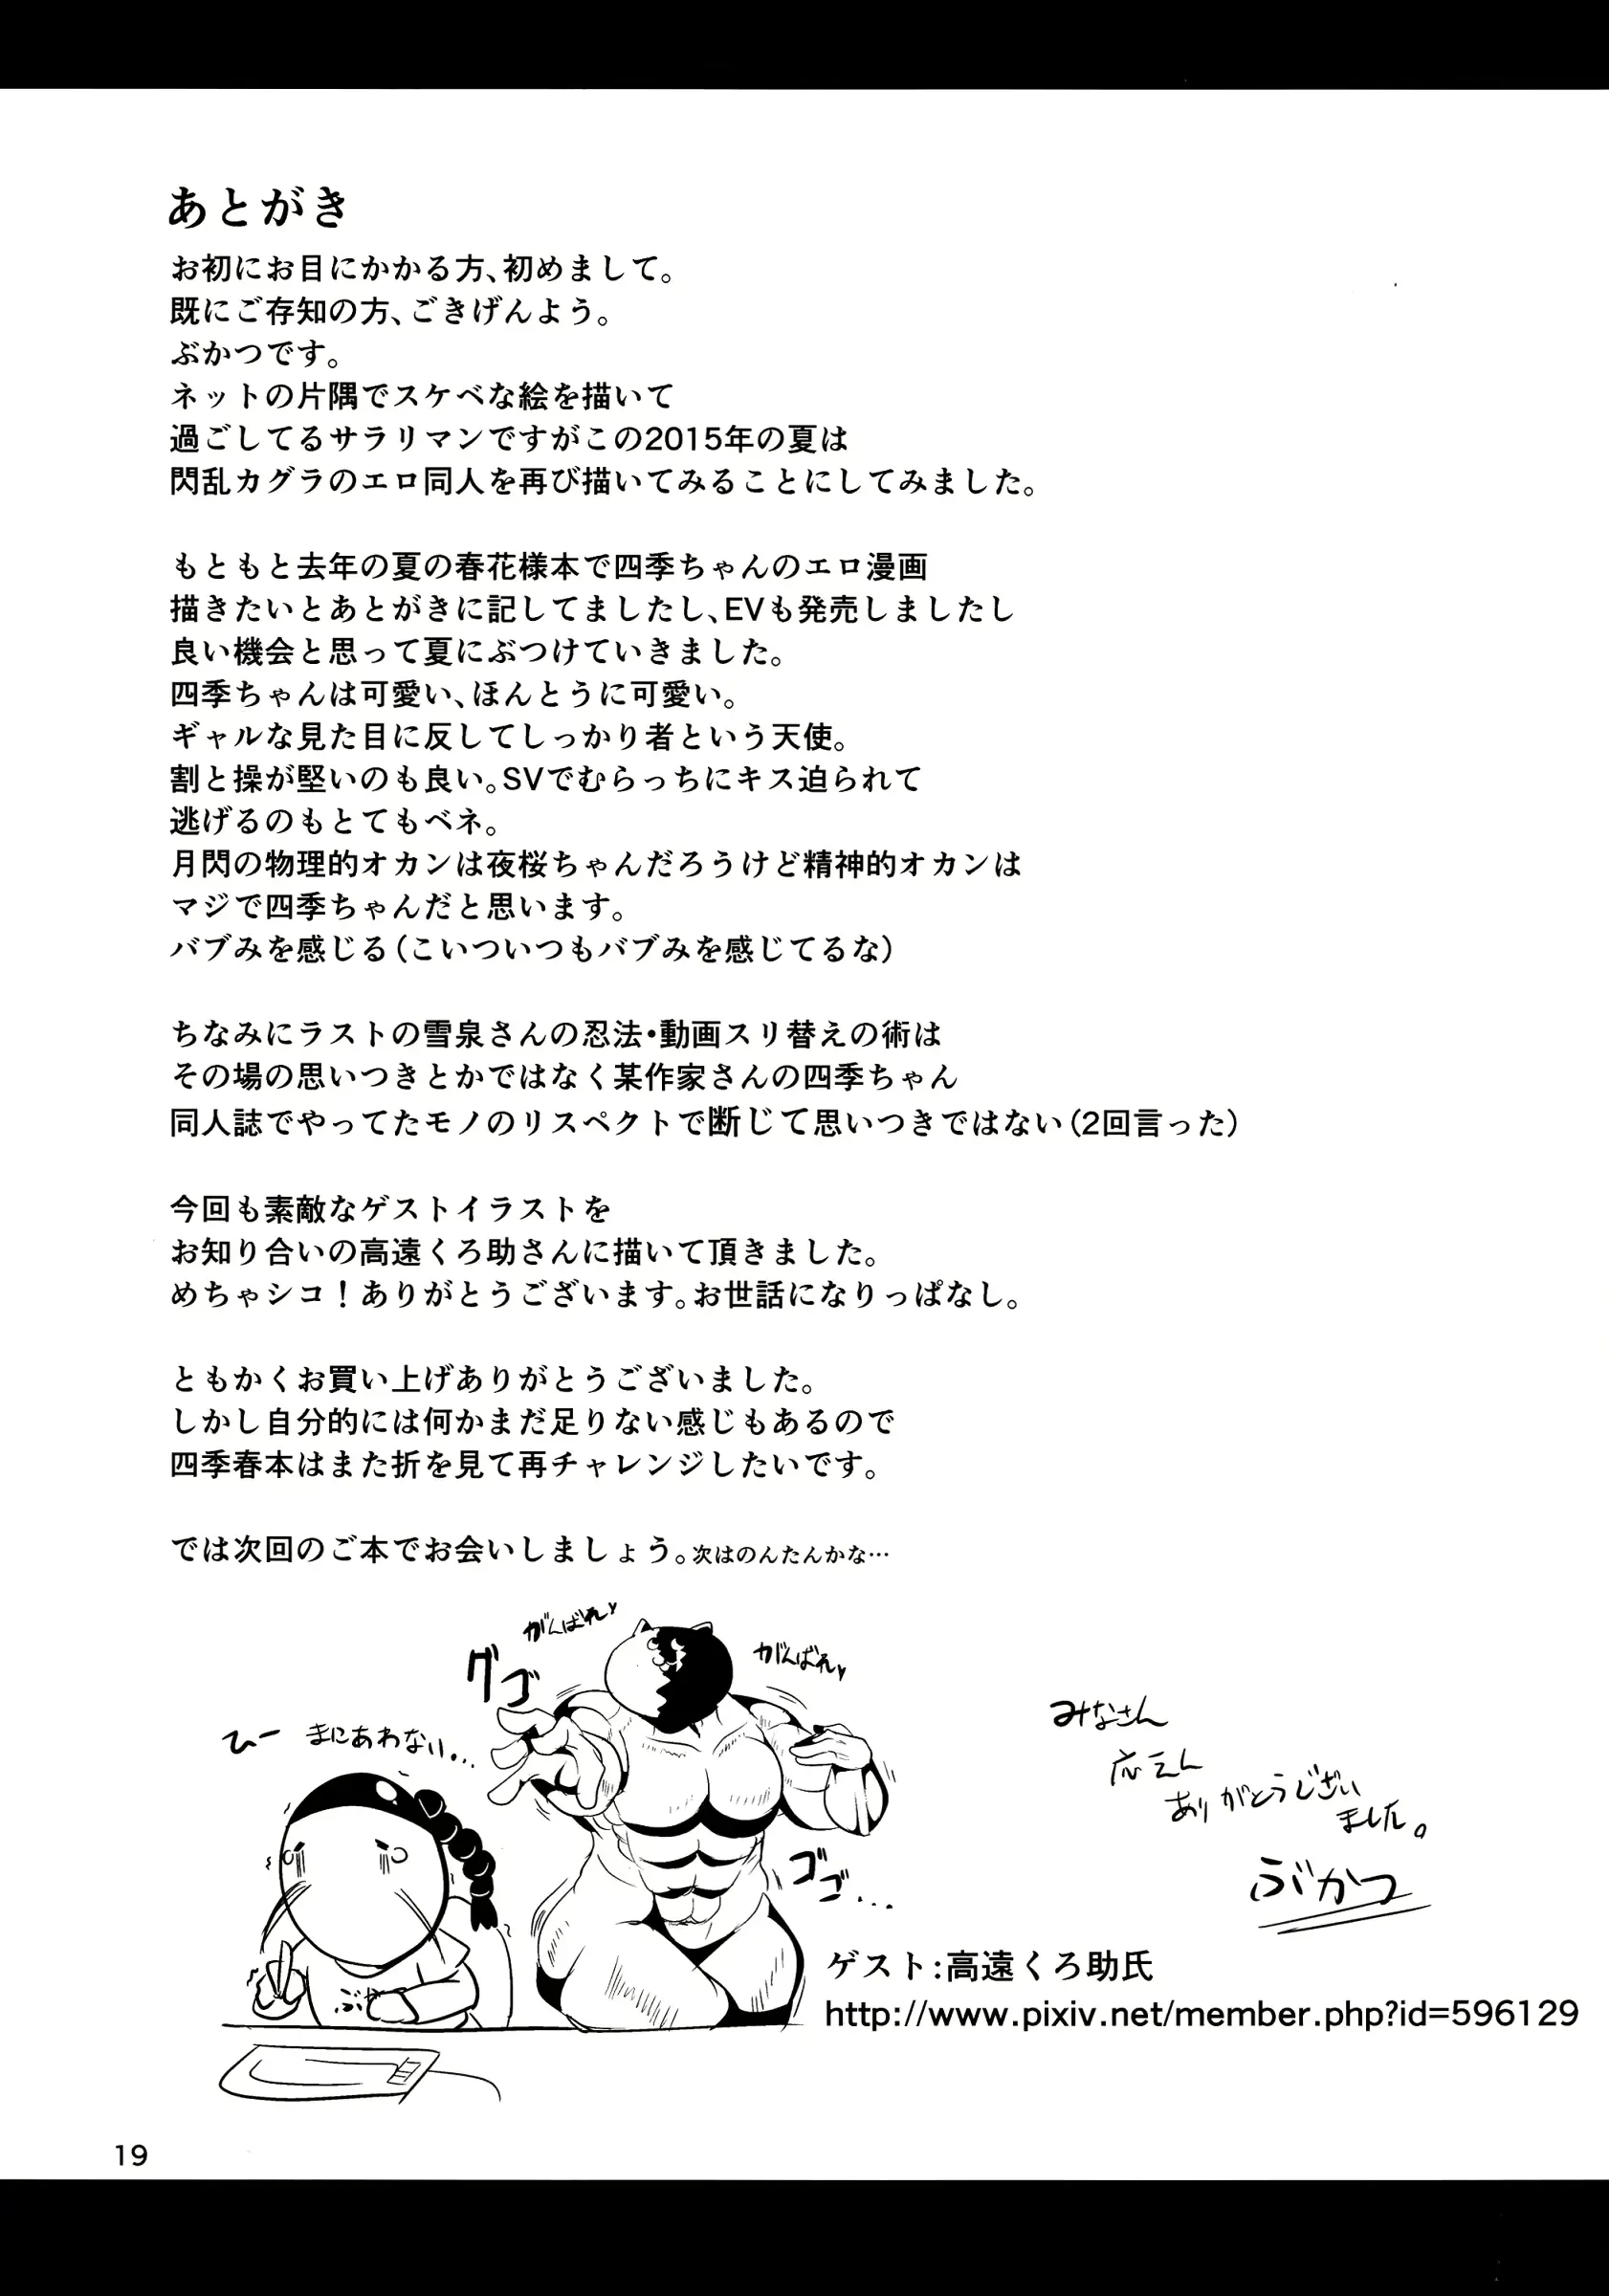 あとがき
お初にお目にかかる方、初めまして。
既にご存知の方、ごきげんよう。
ぶかつです。
ネットの片隅でスケベな絵を描いて
過ごしてるサラリマンですがこの2015年の夏は
閃乱カグラのエロ同人を再び描いてみることにしてみました。
もともと去年の夏の春花様本で四季ちゃんのエロ漫画
描きたいとあとがきに記してましたし、EVも発売しましたし
良い機会と思って夏にぶつけていきました。
四季ちゃんは可愛い、ほんとうに可愛い。
ギャルな見た目に反してしっかり者という天使。
割と操が堅いのも良い。SVでむらっちにキス迫られて
逃げるのもとてもベネ。
月閃の物理的オカンは夜桜ちゃんだろうけど精神的オカンは
マジで四季ちゃんだと思います。
バブみを感じる（こいついつもバブみを感じてるな）
ちなみにラストの雪泉さんの忍法・動画スリ替えの術は
その場の思いつきとかではなく某作家さんの四季ちゃん
同人誌でやってたモノのリスペクトで断じて思いつきではない（2回言った）
今回も素敵なゲストイラストを
お知り合いの高遠くろ助さんに描いて頂きました。
めちゃシコ！ありがとうございます。お世話になりっぱなし。
ともかくお買い上げありがとうございました。
しかし自分的には何かまだ足りない感じもあるので
四季春本はまた折を見て再チャレンジしたいです。
では次回のご本でお会いしましょう。次はのんたんかな…
がんばれ♥
がんばれ♥
グゴ
ひー まにあわない...
ゴゴ...
ぶか
みなさん
応えん
ありがとうござい
ました。
ぶかつ
ゲスト：高遠くろ助氏
http://www.pixiv.net/member.php?id=596129
19